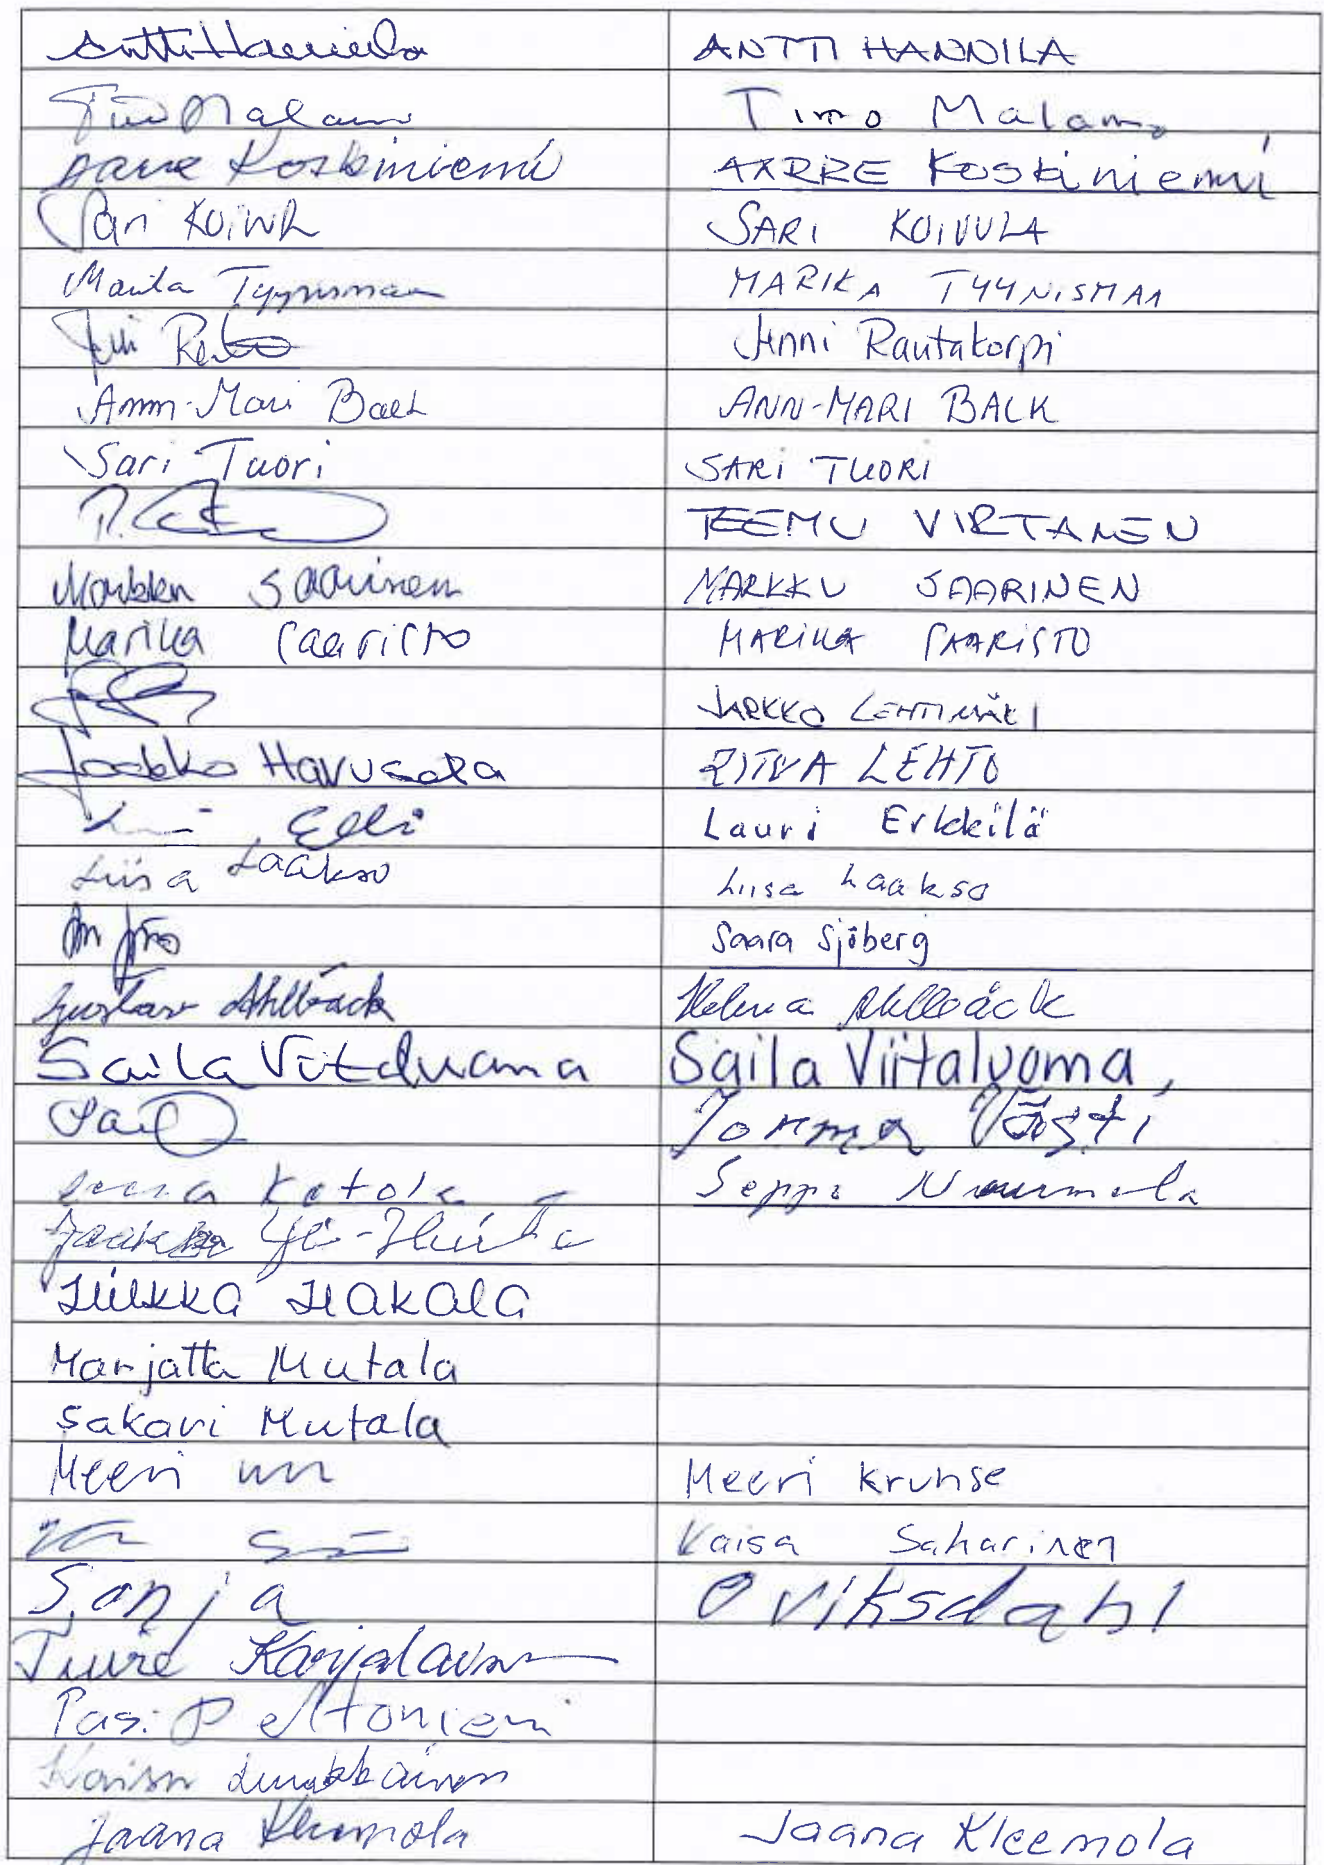 Antti Hannila ANTTI HANNILA
Timo Malamo
Aarre Koskiniemi AARRE Koskiniemi
Sari SARI KOIVULA
Marika Tyynismaa MARIKA TYYNISMAA
Jenni Rautakorpi
Ann-Mari Back ANN-MARI BALK
Sari Tuori SARI TUORI
TEEMU VIRTANEN
Markku Saarinen MARKKU SAARINEN
Marika Saaristo MARIKA SAARISTO
JARKKO LEHTIMÄKI
Jaakko Havusela RITVA LEHTO
Lauri Erkkilä
Liisa Laakso Liisa Laakso
Saara Sjöberg
Gustav Ahlbäck Helena Ahlbäck
Saila Viitaluoma Saila Viitaluoma
Jorma Västi
Ketola Seppo Nummela
Jaakko
Hilkka Hakala
Marjatta Mutala
Sakari Mutala
Meeri Meeri Krunse
Kaisa Saharinen
Sonja Oviksdahl
Tuire Karjalainen
Pasi Peltoniemi
Kaisu Luukkainen
Jaana Kleemola Jaana Kleemola